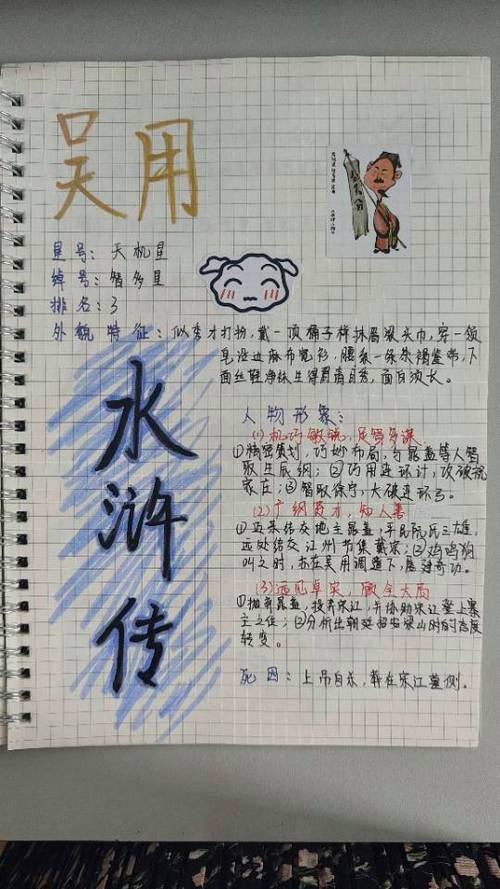 吴用
星号：天机星
绰号：智多星
排名：3
外貌特征：似秀才打扮，戴一顶桶子样抹眉梁头巾，穿一领
皂沿边麻布宽衫，腰系一条茶褐銮带，下
面丝鞋净袜生得眉清目秀，面白须长。
水浒传
人物形象：
(1)机巧敏锐，足智多谋
①精密策划，巧妙布局，与晁盖等人智
取生辰纲；②巧用连环计，攻破祝
家庄；③智取徐宁，大破连环马。
(2)广纲英才，知人善
①近来结交地主晁盖，平民阮氏三雄，
远处结交江州节级戴宗；②鸡鸣狗
叫之时，亦在吴用调遣下，屡建奇功。
(3)远见卓实，顾全大局
①抛弃晁盖，投奔宋江，并协助宋江登上寨
主之位；②分析出朝廷招安梁山时的态度
转变。
死因：上吊自杀，葬在宋江墓侧。